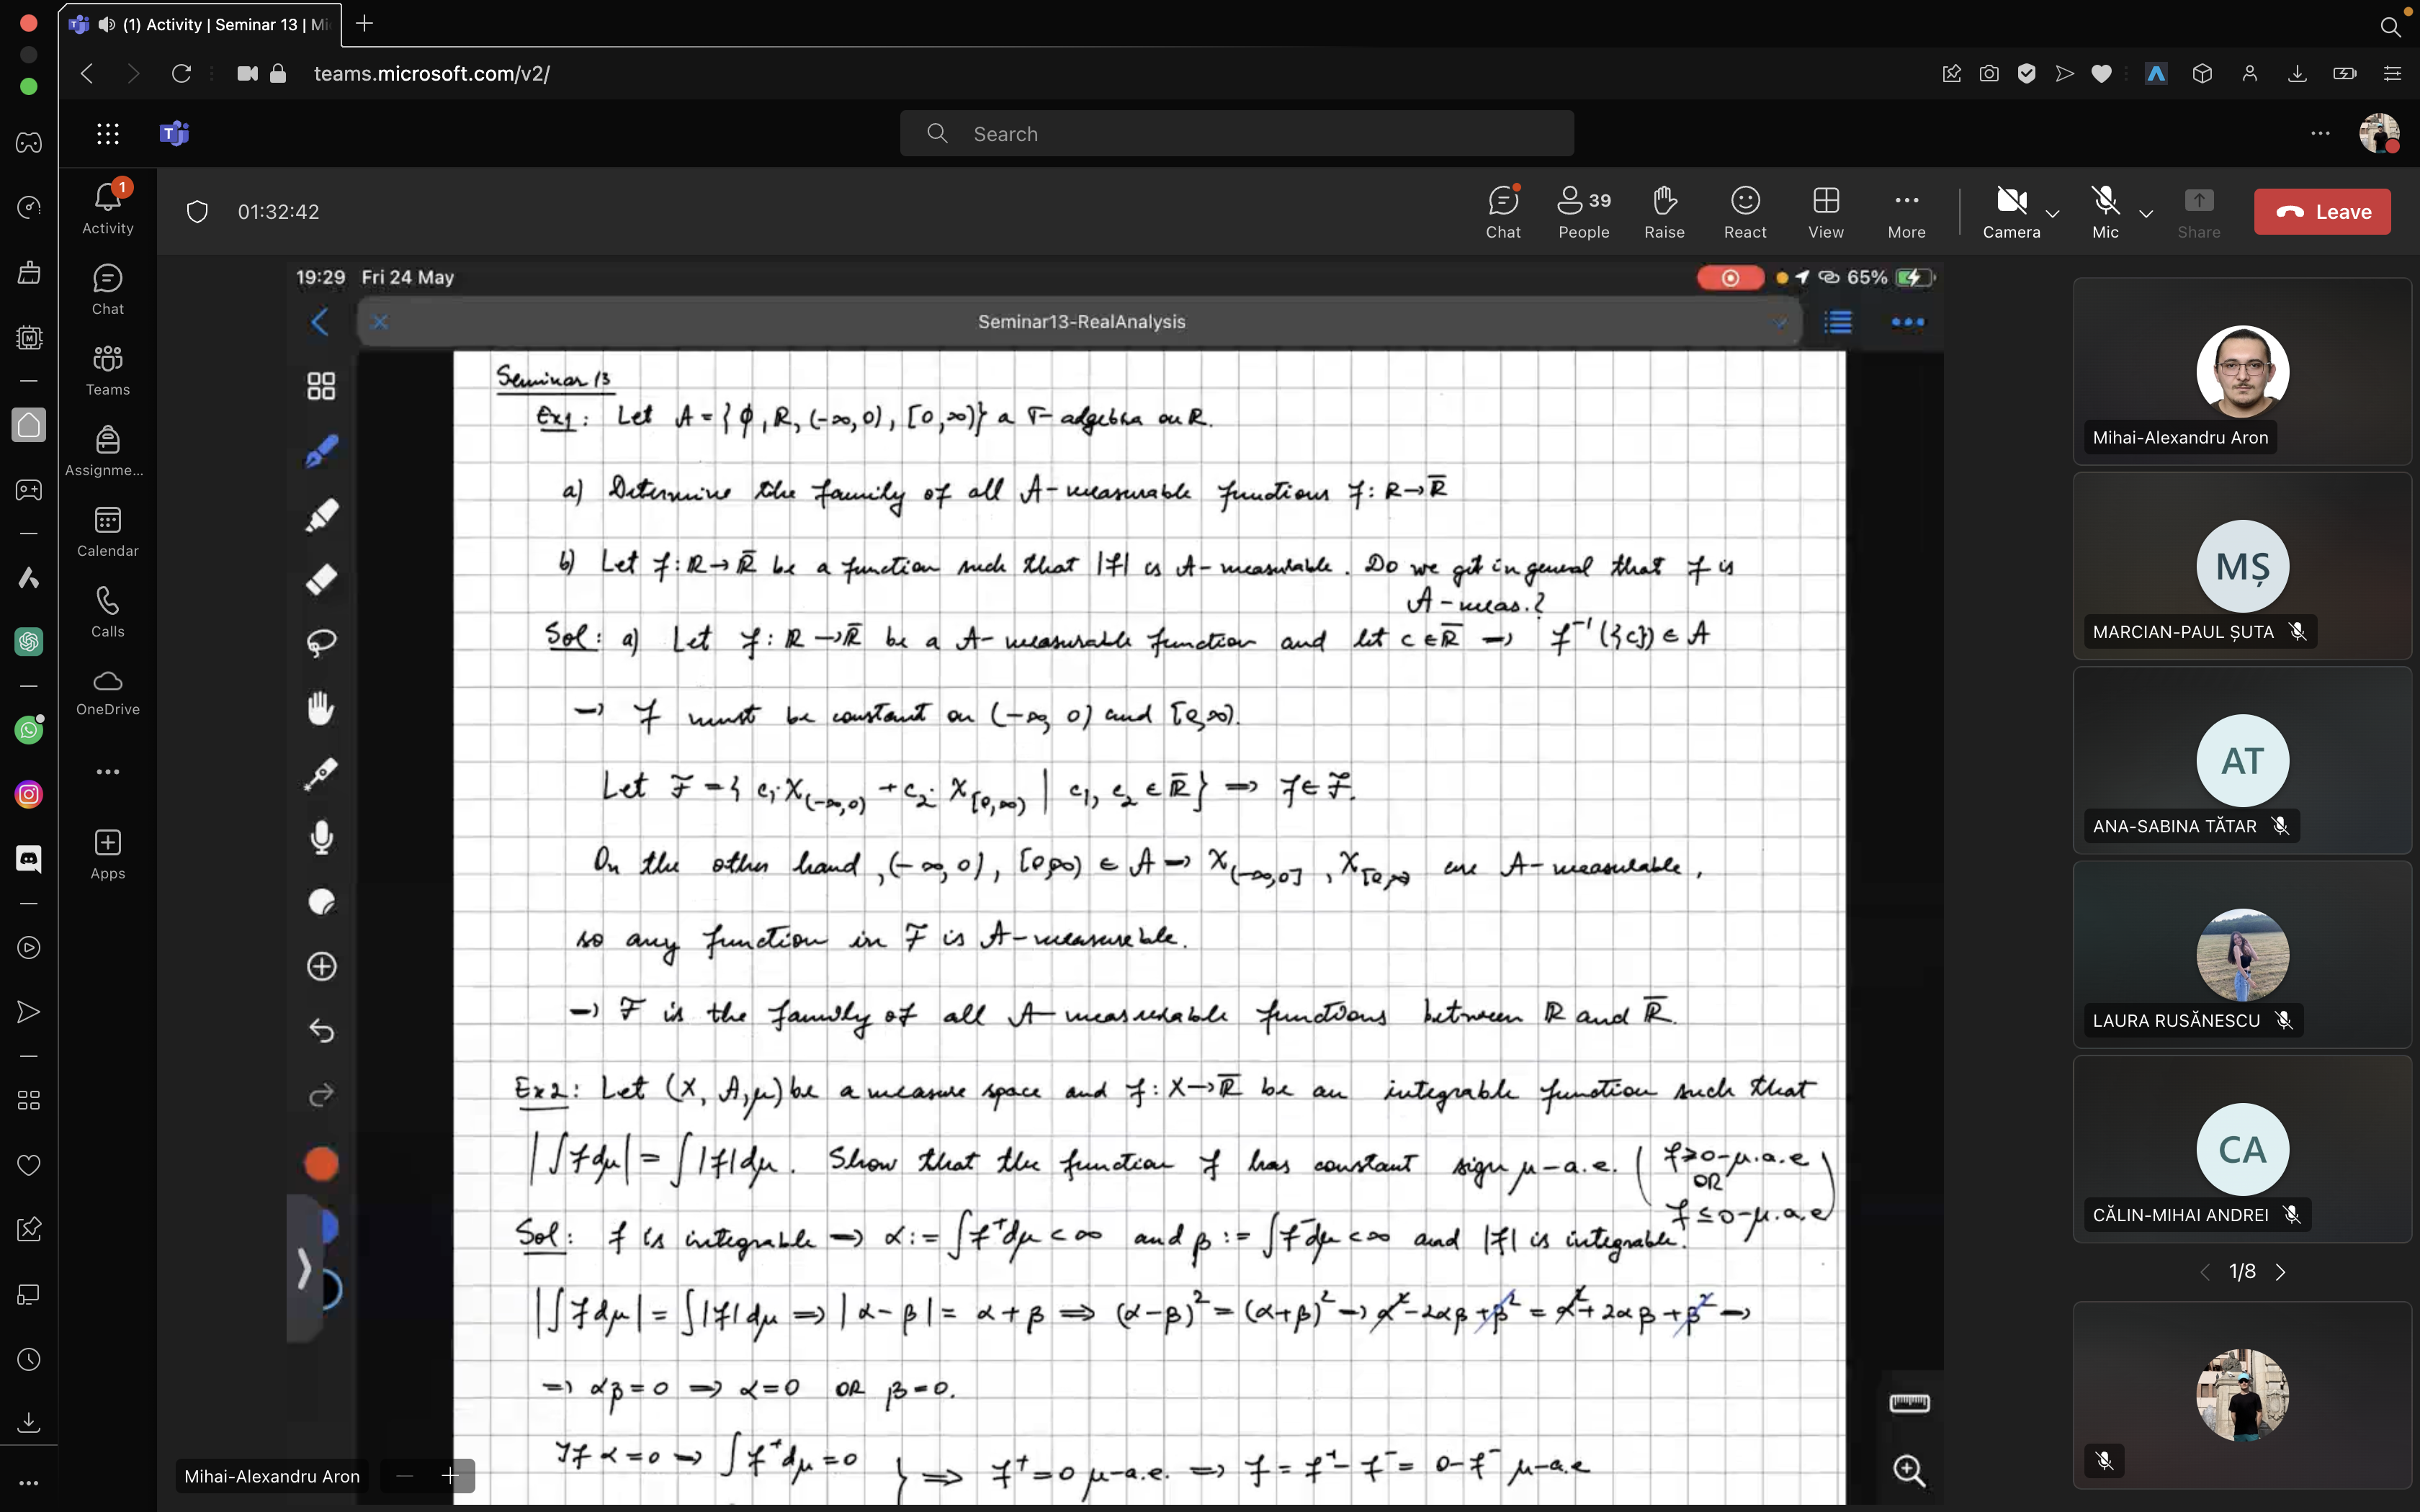 (1) Activity | Seminar 13 | Mi
teams.microsoft.com/v2/
Search
1
Activity
Chat
Teams
Assignme...
Calendar
Calls
OneDrive
Apps
01:32:42
Chat
39
People
Raise
React
View
More
Camera
Mic
Share
Leave
19:29 Fri 24 May
65%
Seminar13-RealAnalysis
Seminar 13
Ex1: Let A = {ϕ, R, (-∞, 0), [0, ∞)} a σ-algebra on R.
a) Determine the family of all A-measurable functions f: R→R̅
b) Let f: R→R̅ be a function such that |f| is A-measurable. Do we get in general that f is
A-meas.?
Sol: a) Let f: R→R̅ be a A-measurable function and let c∈R̅ → f⁻¹({c}) ∈ A
→ f must be constant on (-∞, 0) and [0, ∞).
Let F = { c₁·χ₍₋∞,₀₎ + c₂·χ[0,∞) | c₁, c₂ ∈ R̅ } ⇒ f∈F.
On the other hand, (-∞, 0), [0,∞) ∈ A → χ(-∞,0], χ[0,∞) are A-measurable,
so any function in F is A-measurable.
→ F is the family of all A-measurable functions between R and R̅.
Ex2: Let (X, A, μ) be a measure space and f: X→R̅ be an integrable function such that
|∫f dμ| = ∫|f| dμ. Show that the function f has constant sign μ-a.e. (f≥0-μ.a.e
OR
f≤0-μ.a.e)
Sol: f is integrable → α := ∫f⁺dμ < ∞ and β := ∫f⁻dμ < ∞ and |f| is integrable.
|∫f dμ| = ∫|f| dμ ⇒ |α-β| = α+β ⇒ (α-β)² = (α+β)² → α²-2αβ+β² = α²+2αβ+β² →
→ αβ=0 → α=0 OR β=0.
If α=0 → ∫f⁺dμ=0 } ⇒ f⁺=0 μ-a.e. ⇒ f = f⁺-f⁻ = 0-f⁻ μ-a.e
Mihai-Alexandru Aron
Mihai-Alexandru Aron
MȘ
MARCIAN-PAUL ȘUTA
AT
ANA-SABINA TĂTAR
LAURA RUSĂNESCU
CA
CĂLIN-MIHAI ANDREI
1/8